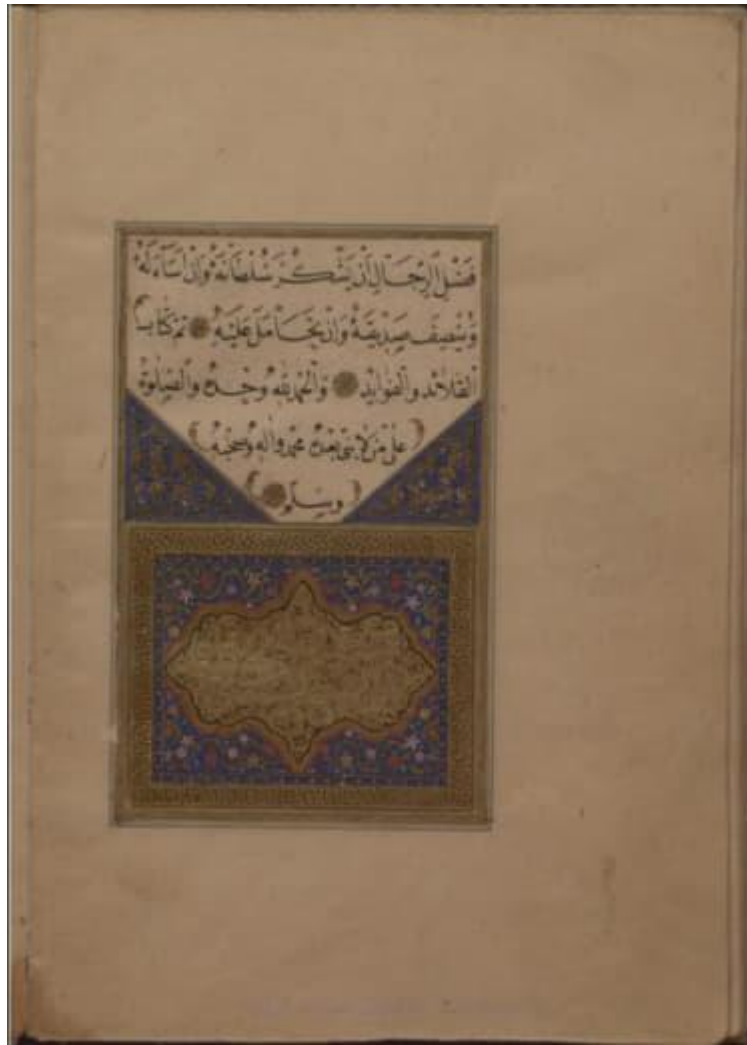 فضل الرجال ان يشكر سلطانه وان اساء له
وينصف صديقه وان تحامل عليه تم كتاب
القلائد والفوايد والحمد لله وحده والصلوة
على من لا نبى بعده محمد واله وصحبه
وسلم